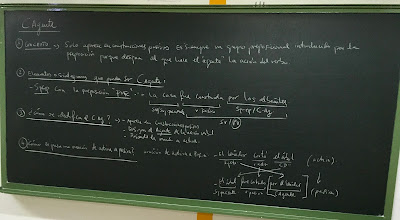 C Agente
① CONCEPTO → Solo aparece en construcciones pasivas. Es siempre un grupo preposicional introducido por la
preposición por que designa al que hace el agente la acción del verbo.
② Elementos o sintagmas que pueden ser C Agente:
- Sprep con la preposición "POR" → La casa fue construida por los albañiles
Suj paciente v pasiva Sprep / C. Ag
SV / PV
③ ¿Cómo se identifica el C Ag? → - Aparece en construcciones pasivas
- Designa el agente de la acción verbal
④ ¿Cómo se pasa una oración de activa a pasiva? oración de activa a pasiva - El leñador cortó el árbol (activa)
Sujeto CD
- El árbol fue cortado por el leñador (pasiva)
Suj paciente v pasiva C agente